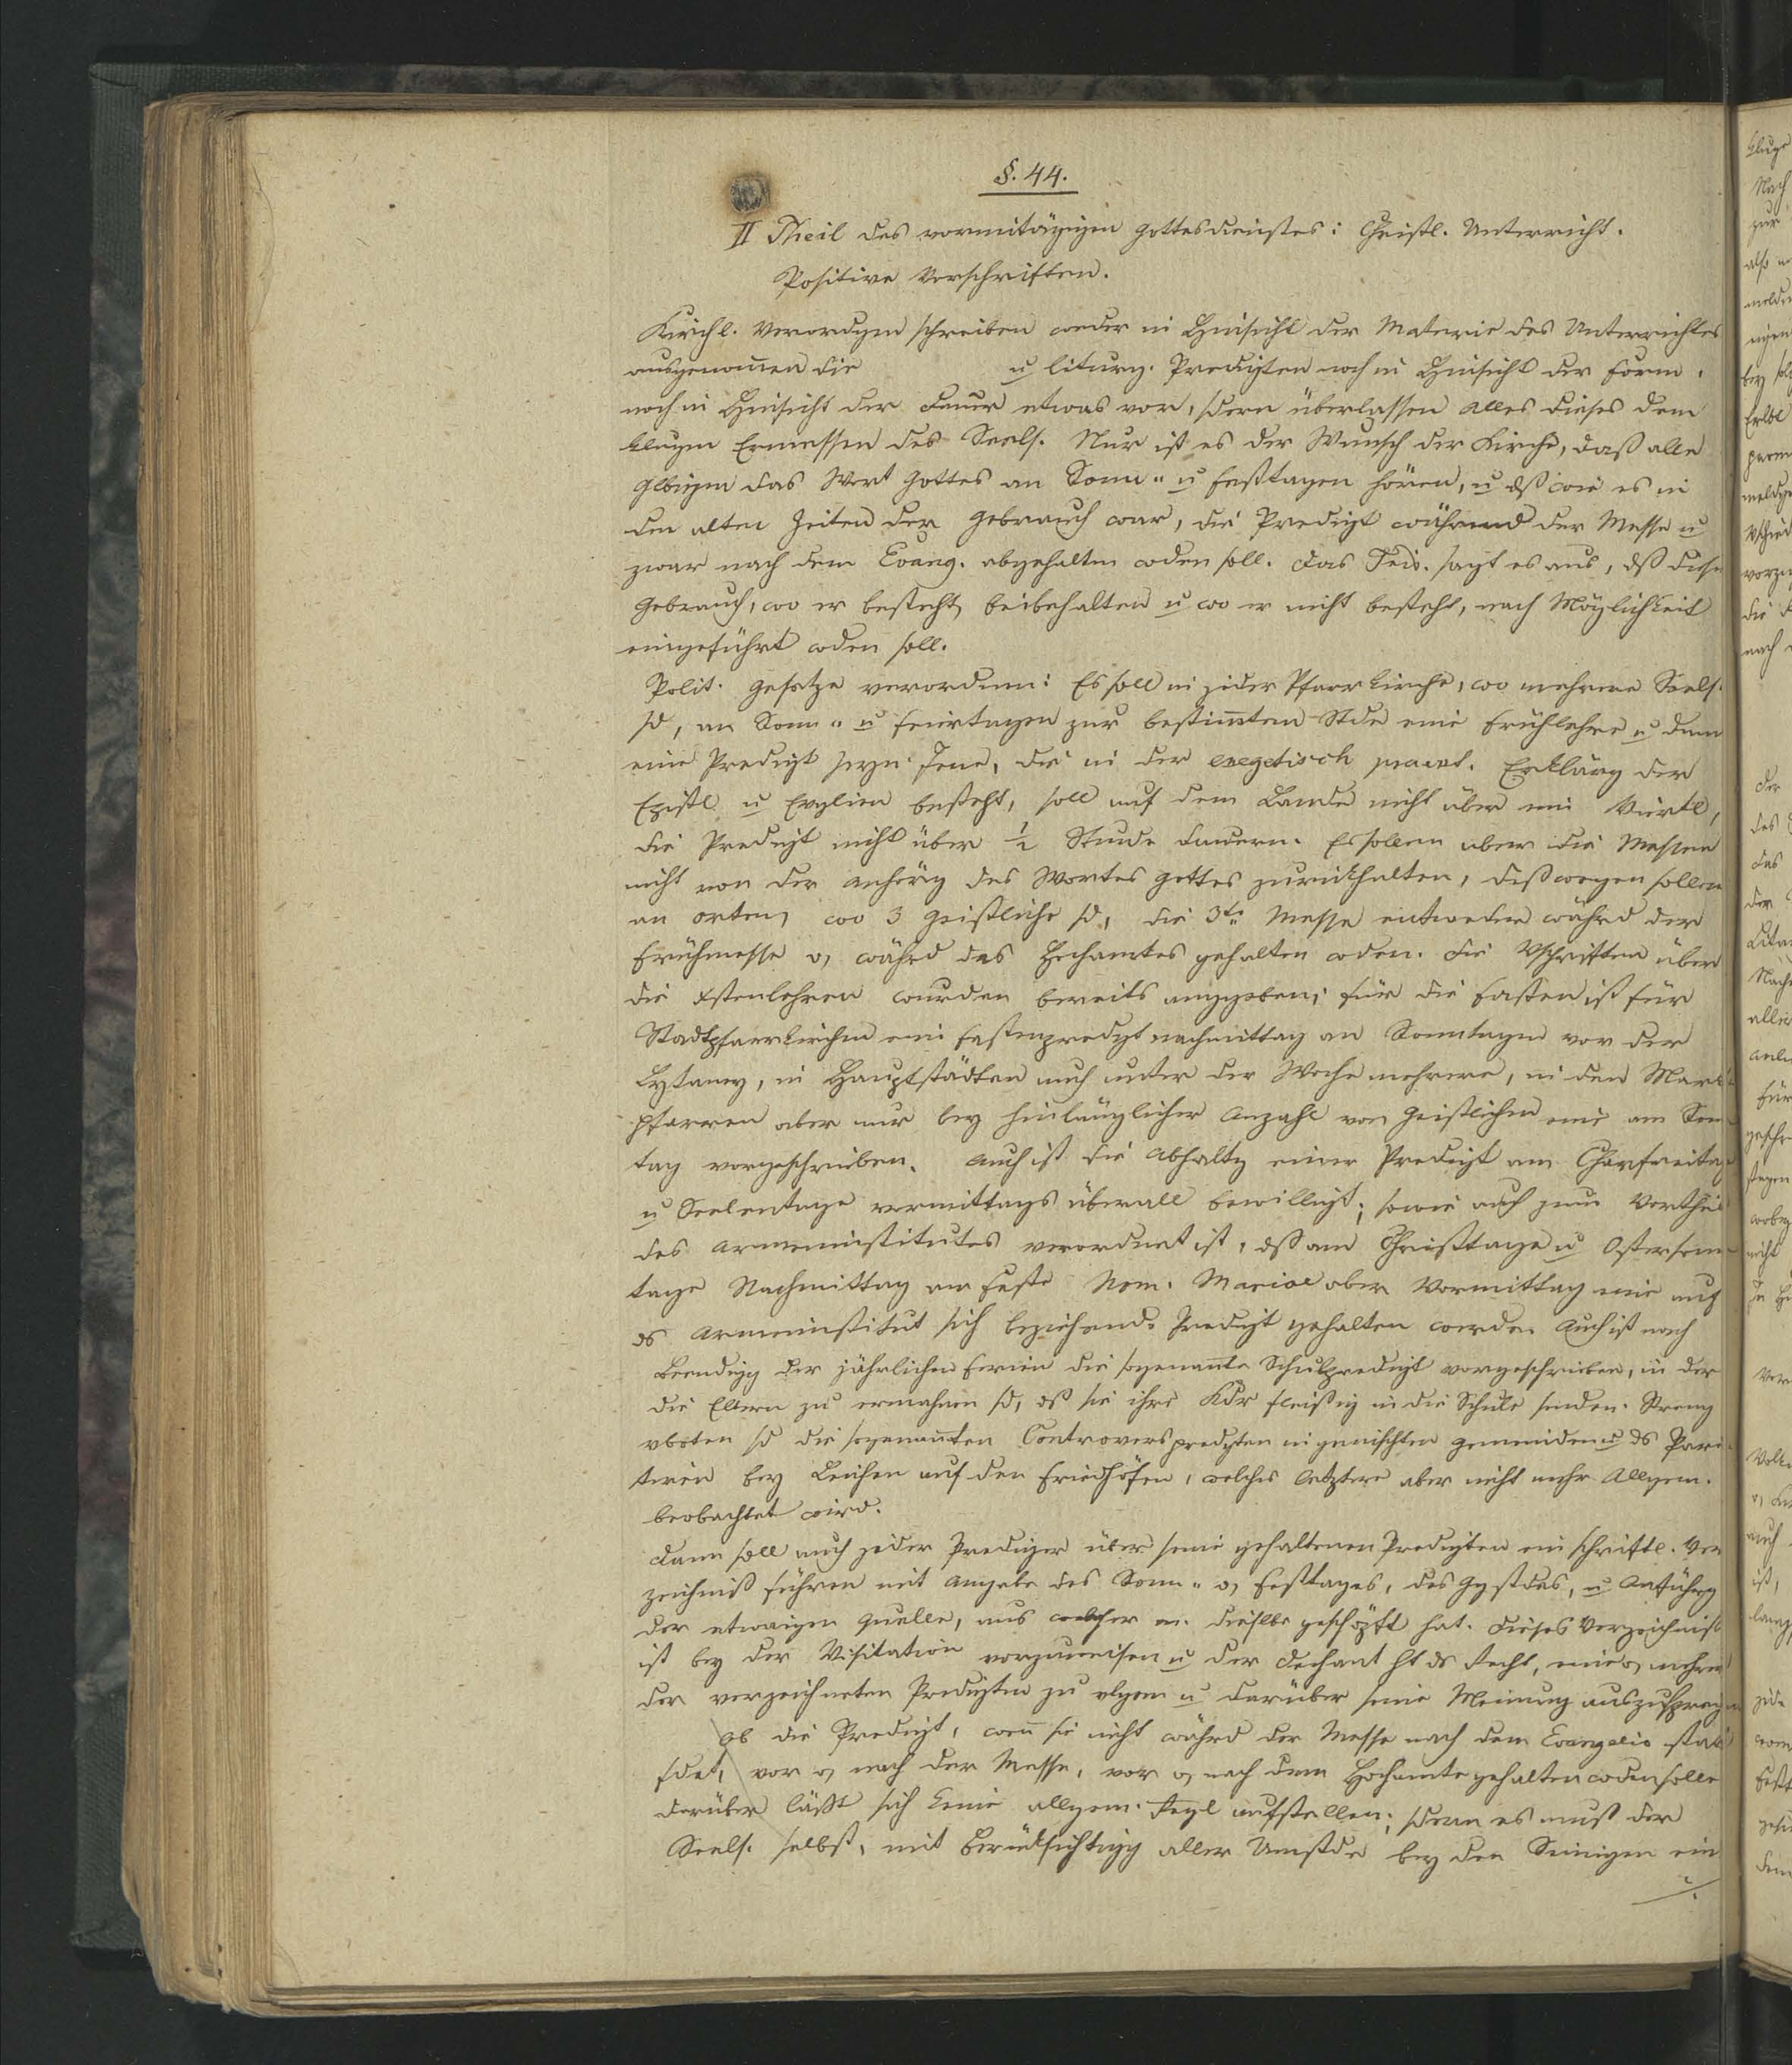 §. 44.
II Theil des vormitägigen Gottesdienstes: Christl. Unterricht.
Positive Vorschriften.
Kirchl. Verordgen schreiben weder in Hinsicht der Materie des Unterrichtes
ausgenomen die u liturg. Predigten noch in Hinsicht der Form.
noch in Hinsicht der Dauer etwas vor, sdern überlassen alles dieses dem
klugen Ermessen des Seels. Nur ist es der Wunsch der Kirche, daß alle
Glbigen das Wort Gottes an Sonn- u Festtagen hören, u dß wie es in
den alten Zeiten der Gebrauch war, die Predigt während der Messe u
zwar nach dem Evang. abgehalten wden soll. Das Trid. sagt es aus, dß dieser
Gebrauch, wo er besteht, beibehalten u wo er nicht besteht, nach Möglichkeit
eingeführt wden soll.
Polit. Gesetze verordnen: Es soll in jeder Pfarrkirche, wo mehrere Seels.
sd, an Sonn- u Feiertagen zur bestimten Stde eine Frühlehre u dann
eine Predigt seyn. Jene, die in der exegetisch pract. Erklärg der
Epistl u Evglien besteht, soll auf dem Lande nicht über ein Viertl,
die Predigt nicht über ½ Stunde dauern. Es sollen aber die Messen
nicht von der Anhörg des Wortes Gottes zurückhalten, deßwegen sollen
an Orten, wo 3 Geistliche sd, die 3te Messe entweder währd der
Frühmesse o, währd des Hochamtes gehalten wden. Die Vschriften über
die Xstenlehren wurden bereits angegeben; für die Fasten ist für
Stadtpfarrkirchen eine Fastenpredgt nachmittag an Sonntagen vor der
Lytaney, in Hauptstädten auch unter der Woche mehrere, in den Markt
pfarren aber nur bey hinlänglicher Anzahl von Geistlichen eine am Son
tag vorgeschrieben. Auch ist die Abhaltg einer Predigt am Charfreitag
u Seelentage vormittags überall bewilligt; sowie auch zum Vortheil
des Armeninstitutes verordnet ist, dß am Christtage u Ostersonn
tage Nachmittag am Feste Nom. Mariae aber Vormittag eine auf
ds Armeninstitut sich beziehende Predigt gehalten werde. Auch ist nach
Beendigg der jährlichen Ferien die sogenannte Schulpredigt vorgeschrieben, in der
die Eltern zu ermahnen sd, dß sie ihre Kdr fleißig in die Schule senden. Streng
vboten sd die sogenannten Controverspredgten in gemischten Gemeinden u ds Pari
tiren bey Leichen auf den Friedhöfen, welches letztere aber nicht mehr Allgem.
beobachtet wird.
Dann soll auch jeder Prediger über seine gehaltenen Predigten ein schriftl. Ver
zeichniß führen mit Angabe des Sonn- o, Festtages, des Ggstdes, u Anführg
der etwaigen Quelle, aus welcher m. dieslbe geschöpft hat. Dieses Verzeichniß
ist bey der Visitation vorzuweisen u der Dechant ht ds Recht, eine o, mehre
der verzeichneten Predigten zu u darüber seine Meinung auszusprechen
Ob die Predigt, wenn sie nicht währd der Messe nach dem Evangelio statt
fdet, vor o, nach der Messe, vor o, nach dem Hochamte gehalten wden solle
darüber läßt sich keine allgem. Regl aufstellen; sdern es muß der
Seels. selbst, mit Berücksichtigg aller Umstde bey den Seinigen ein